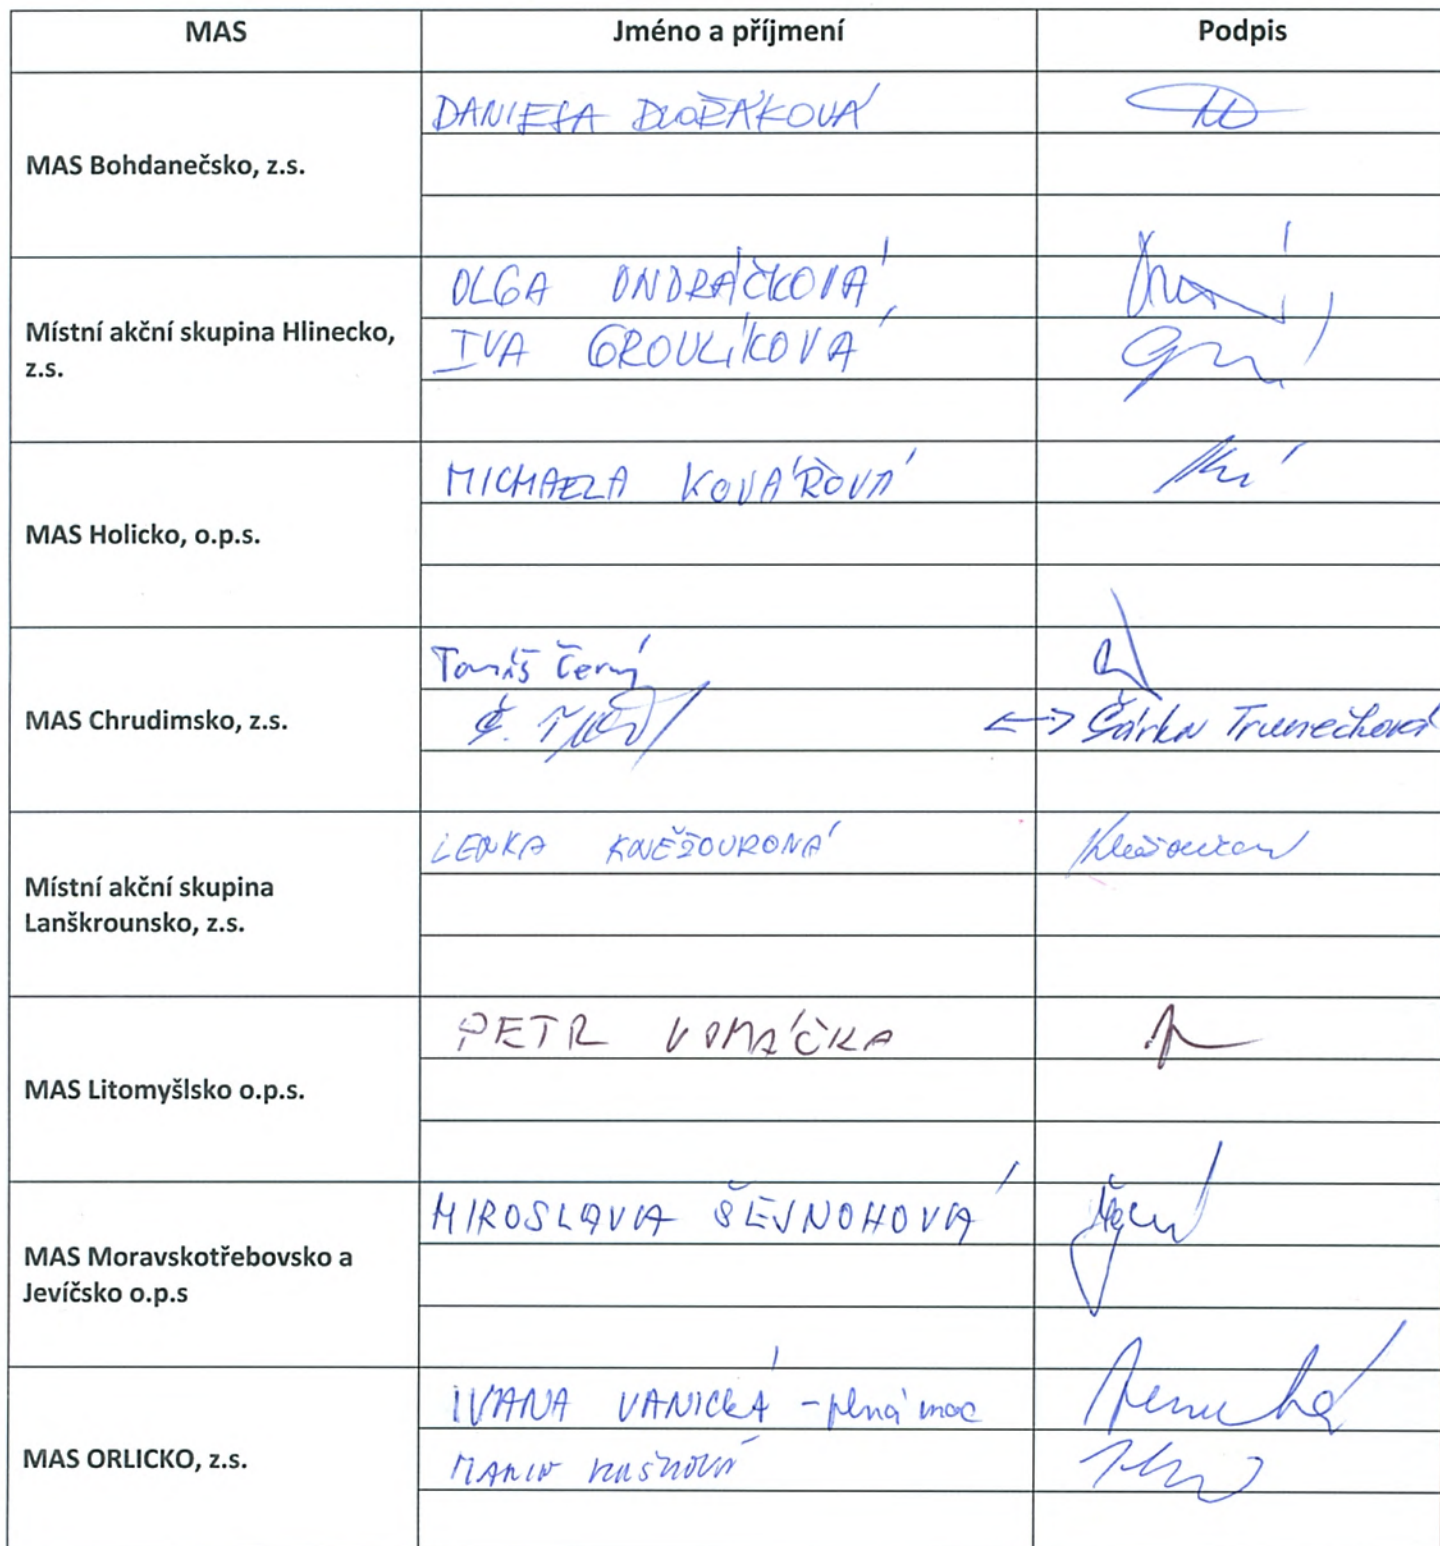 MAS Jméno a příjmení Podpis
MAS Bohdanečsko, z.s.
DANIELA DVOŘÁKOVÁ
Místní akční skupina Hlinecko,
z.s.
OLGA ONDRÁČKOVÁ
IVA GROULÍKOVÁ
MAS Holicko, o.p.s.
MICHAELA KOVÁŘOVÁ
MAS Chrudimsko, z.s.
Tomáš Černý
<-> Šárka Trunečková
Místní akční skupina
Lanškrounsko, z.s.
LENKA KNĚŽOUROVÁ
MAS Litomyšlsko o.p.s.
PETR VOMÁČKA
MAS Moravskotřebovsko a
Jevíčsko o.p.s
MIROSLAVA ŠEJNOHOVÁ
MAS ORLICKO, z.s.
IVANA VANICKÁ - plná moc